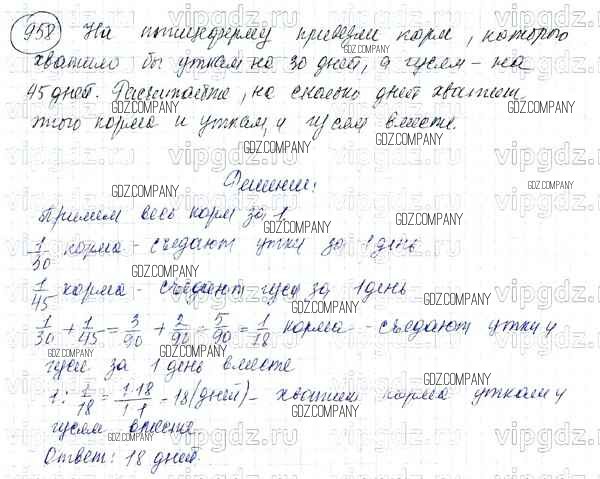 958 На птицеферму привезли корм, которого
хватило бы уткам на 30 дней, а гусям - на
45 дней. Рассчитайте, на сколько дней хватит
этого корма и уткам, и гусям вместе.
Решение:
Примем весь корм за 1.
1/30 корма - съедают утки за 1 день
1/45 корма - съедают гуси за 1 день
1/30 + 1/45 = 3/90 + 2/90 = 5/90 = 1/18 корма - съедают утки и
гуси за 1 день вместе
1 : 1/18 = 1·18/1·1 = 18 (дней) - хватит корма уткам и
гусям вместе
Ответ: 18 дней.